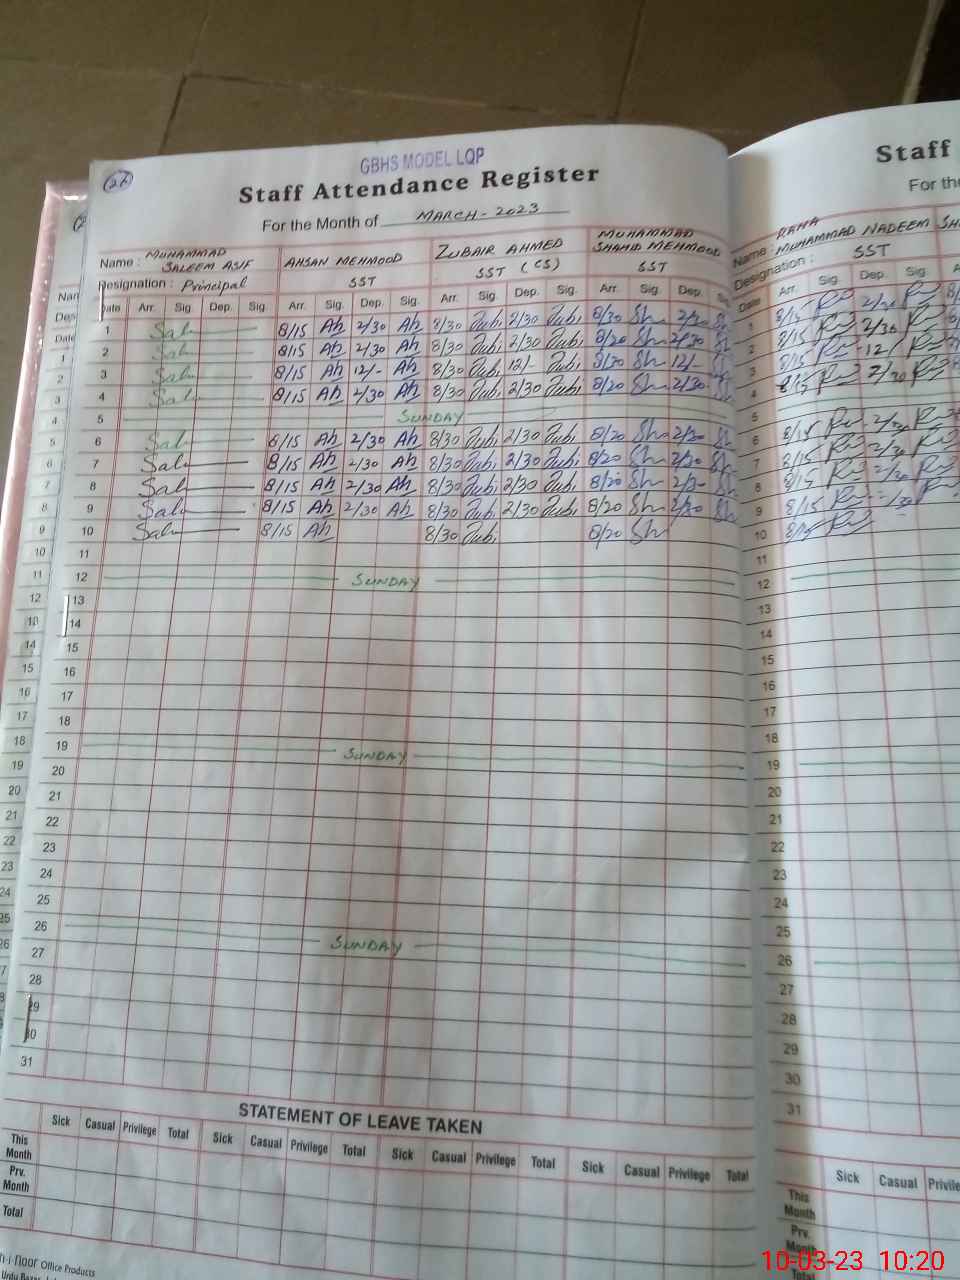 26
GBHS MODEL LQP
Staff Attendance Register
For the Month of MARCH - 2023
Name : MUHAMMAD SALEEM ASIF AHSAN MEHMOOD ZUBAIR AHMED MUHAMMAD SHAHID MEHMOOD
Designation : Principal SST SST (CS) SST
Date Arr. Sig. Dep. Sig. Arr. Sig. Dep. Sig. Arr. Sig. Dep. Sig. Arr. Sig. Dep.
1 Sal 8/15 Ah 2/30 Ah 8/30 Zubi 2/30 Zubi 8/30 Sh 2/30 Sh
2 Sal 8/15 Ah 2/30 Ah 8/30 Zubi 2/30 Zubi 8/20 Sh 2/30 Sh
3 Sal 8/15 Ah 12/- Ah 8/30 Zubi 12/- Zubi 8/20 Sh 12/- Sh
4 Sal 8/15 Ah 2/30 Ah 8/30 Zubi 2/30 Zubi 8/20 Sh 2/30 Sh
5 SUNDAY
6 Sal 8/15 Ah 2/30 Ah 8/30 Zubi 2/30 Zubi 8/20 Sh 2/30 Sh
7 Sal 8/15 Ah 2/30 Ah 8/30 Zubi 2/30 Zubi 8/20 Sh 2/30 Sh
8 Sal 8/15 Ah 2/30 Ah 8/30 Zubi 2/30 Zubi 8/20 Sh 2/30 Sh
9 Sal 8/15 Ah 2/30 Ah 8/30 Zubi 2/30 Zubi 8/20 Sh 2/30 Sh
10 Sal 8/15 Ah 8/30 Zubi 8/20 Sh
11
12 SUNDAY
13
14
15
16
17
18
19 SUNDAY
20
21
22
23
24
25
26 SUNDAY
27
28
29
30
31
STATEMENT OF LEAVE TAKEN
Sick Casual Privilege Total Sick Casual Privilege Total Sick Casual Privilege Total Sick Casual Privilege Total
This Month
Prv. Month
Total
Office Products
Staff
For the
Name : RANA MUHAMMAD NADEEM
Designation : SST
Date Arr. Sig. Dep. Sig.
1 8/15 2/30
2 8/15 2/30
3 8/15 12/
4 8/15 2/30
5
6 8/15 2/30
7 8/15 2/30
8 8/15 2/30
9 8/15
10 8/15
11
12
13
14
15
16
17
18
19
20
21
22
23
24
25
26
27
28
29
30
31
Sick Casual
This Month
Prv. Month
Total
10-03-23 10:20